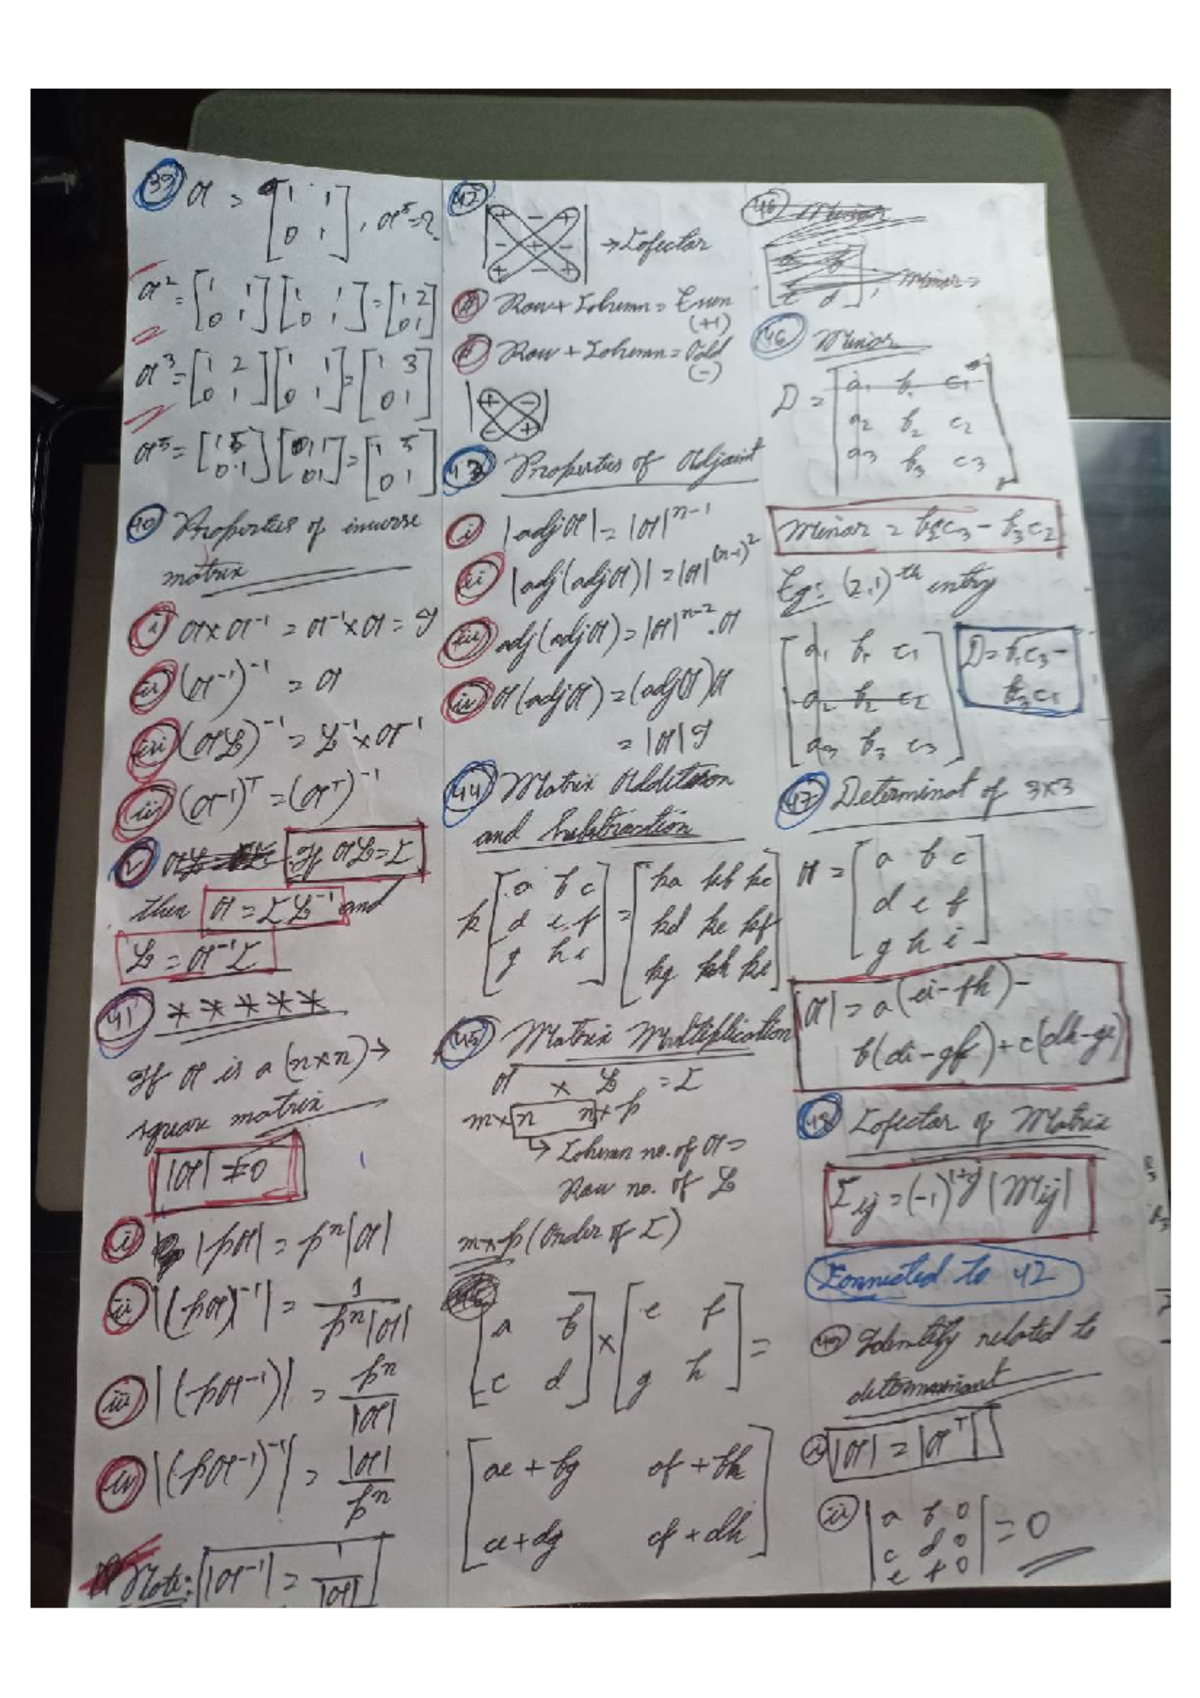 39 A = [1 1
0 1], A⁵ = ?
A² = [1 1
0 1] [1 1
0 1] = [1 2
0 1]
A³ = [1 2
0 1] [1 1
0 1] = [1 3
0 1]
A⁵ = [1 5
0 1] [1
0 1] = [1 5
0 1]
40 Properties of inverse
matrix
i A × A⁻¹ = A⁻¹ × A = I
ii (A⁻¹)⁻¹ = A
iii (AB)⁻¹ = B⁻¹ × A⁻¹
(A⁻¹)ᵀ = (Aᵀ)⁻¹
v If AB = C
then A = C B⁻¹ and
B = A⁻¹ C
41 * * * * *
If A is a (n×n) →
square matrix
|A| ≠ 0
i |pA| = pⁿ|A|
ii |(pA)⁻¹| = 1 / pⁿ|A|
iii |(pA⁻¹)| = pⁿ / |A|
iv |(pA⁻¹)⁻¹| = |A| / pⁿ
Note: |A⁻¹| = 1 / |A|
42
+ − +
− + −
+ − +
→ Cofactor
# Row + Column = Even
(+)
# Row + Column = Odd
(−)
+ −
− +
43 Properties of Adjoint
i |adj A| = |A|ⁿ⁻¹
ii |adj(adj A)| = |A|^(n-1)²
iii adj(adj A) = |A|ⁿ⁻² . A
iv A(adj A) = (adj A)A
= |A| I
44 Matrix Addition
and Subtraction
k [a b c
d e f
g h i] = [ka kb kc
kd ke kf
kg kh ki]
45 Matrix Multiplication
A × B = C
m × n n × p
↳ Column no. of A =
Row no. of B
m × p (Order of C)
[a b
c d] × [e f
g h] =
[ae + bg af + bh
ce + dg cf + dh]
46 Minor
D = |a₁ b₁ c₁
a₂ b₂ c₂
a₃ b₃ c₃|
Minor = b₂c₃ − b₃c₂
Eg: (2,1)-th entry
[a₁ b₁ c₁
a₂ b₂ c₂
a₃ b₃ c₃]
D = b₁c₃ −
b₃c₁
47 Determinat of 3×3
A = [a b c
d e f
g h i]
|A| = a(ei − fh) −
b(di − gf) + c(dh − ge)
48 Cofactor of Matrix
Cij = (−1)^(i+j) |Mij|
Connected to 42
49 Identity related to
determinant
i |A| = |Aᵀ|
ii |a b 0
c d 0
e f 0| = 0